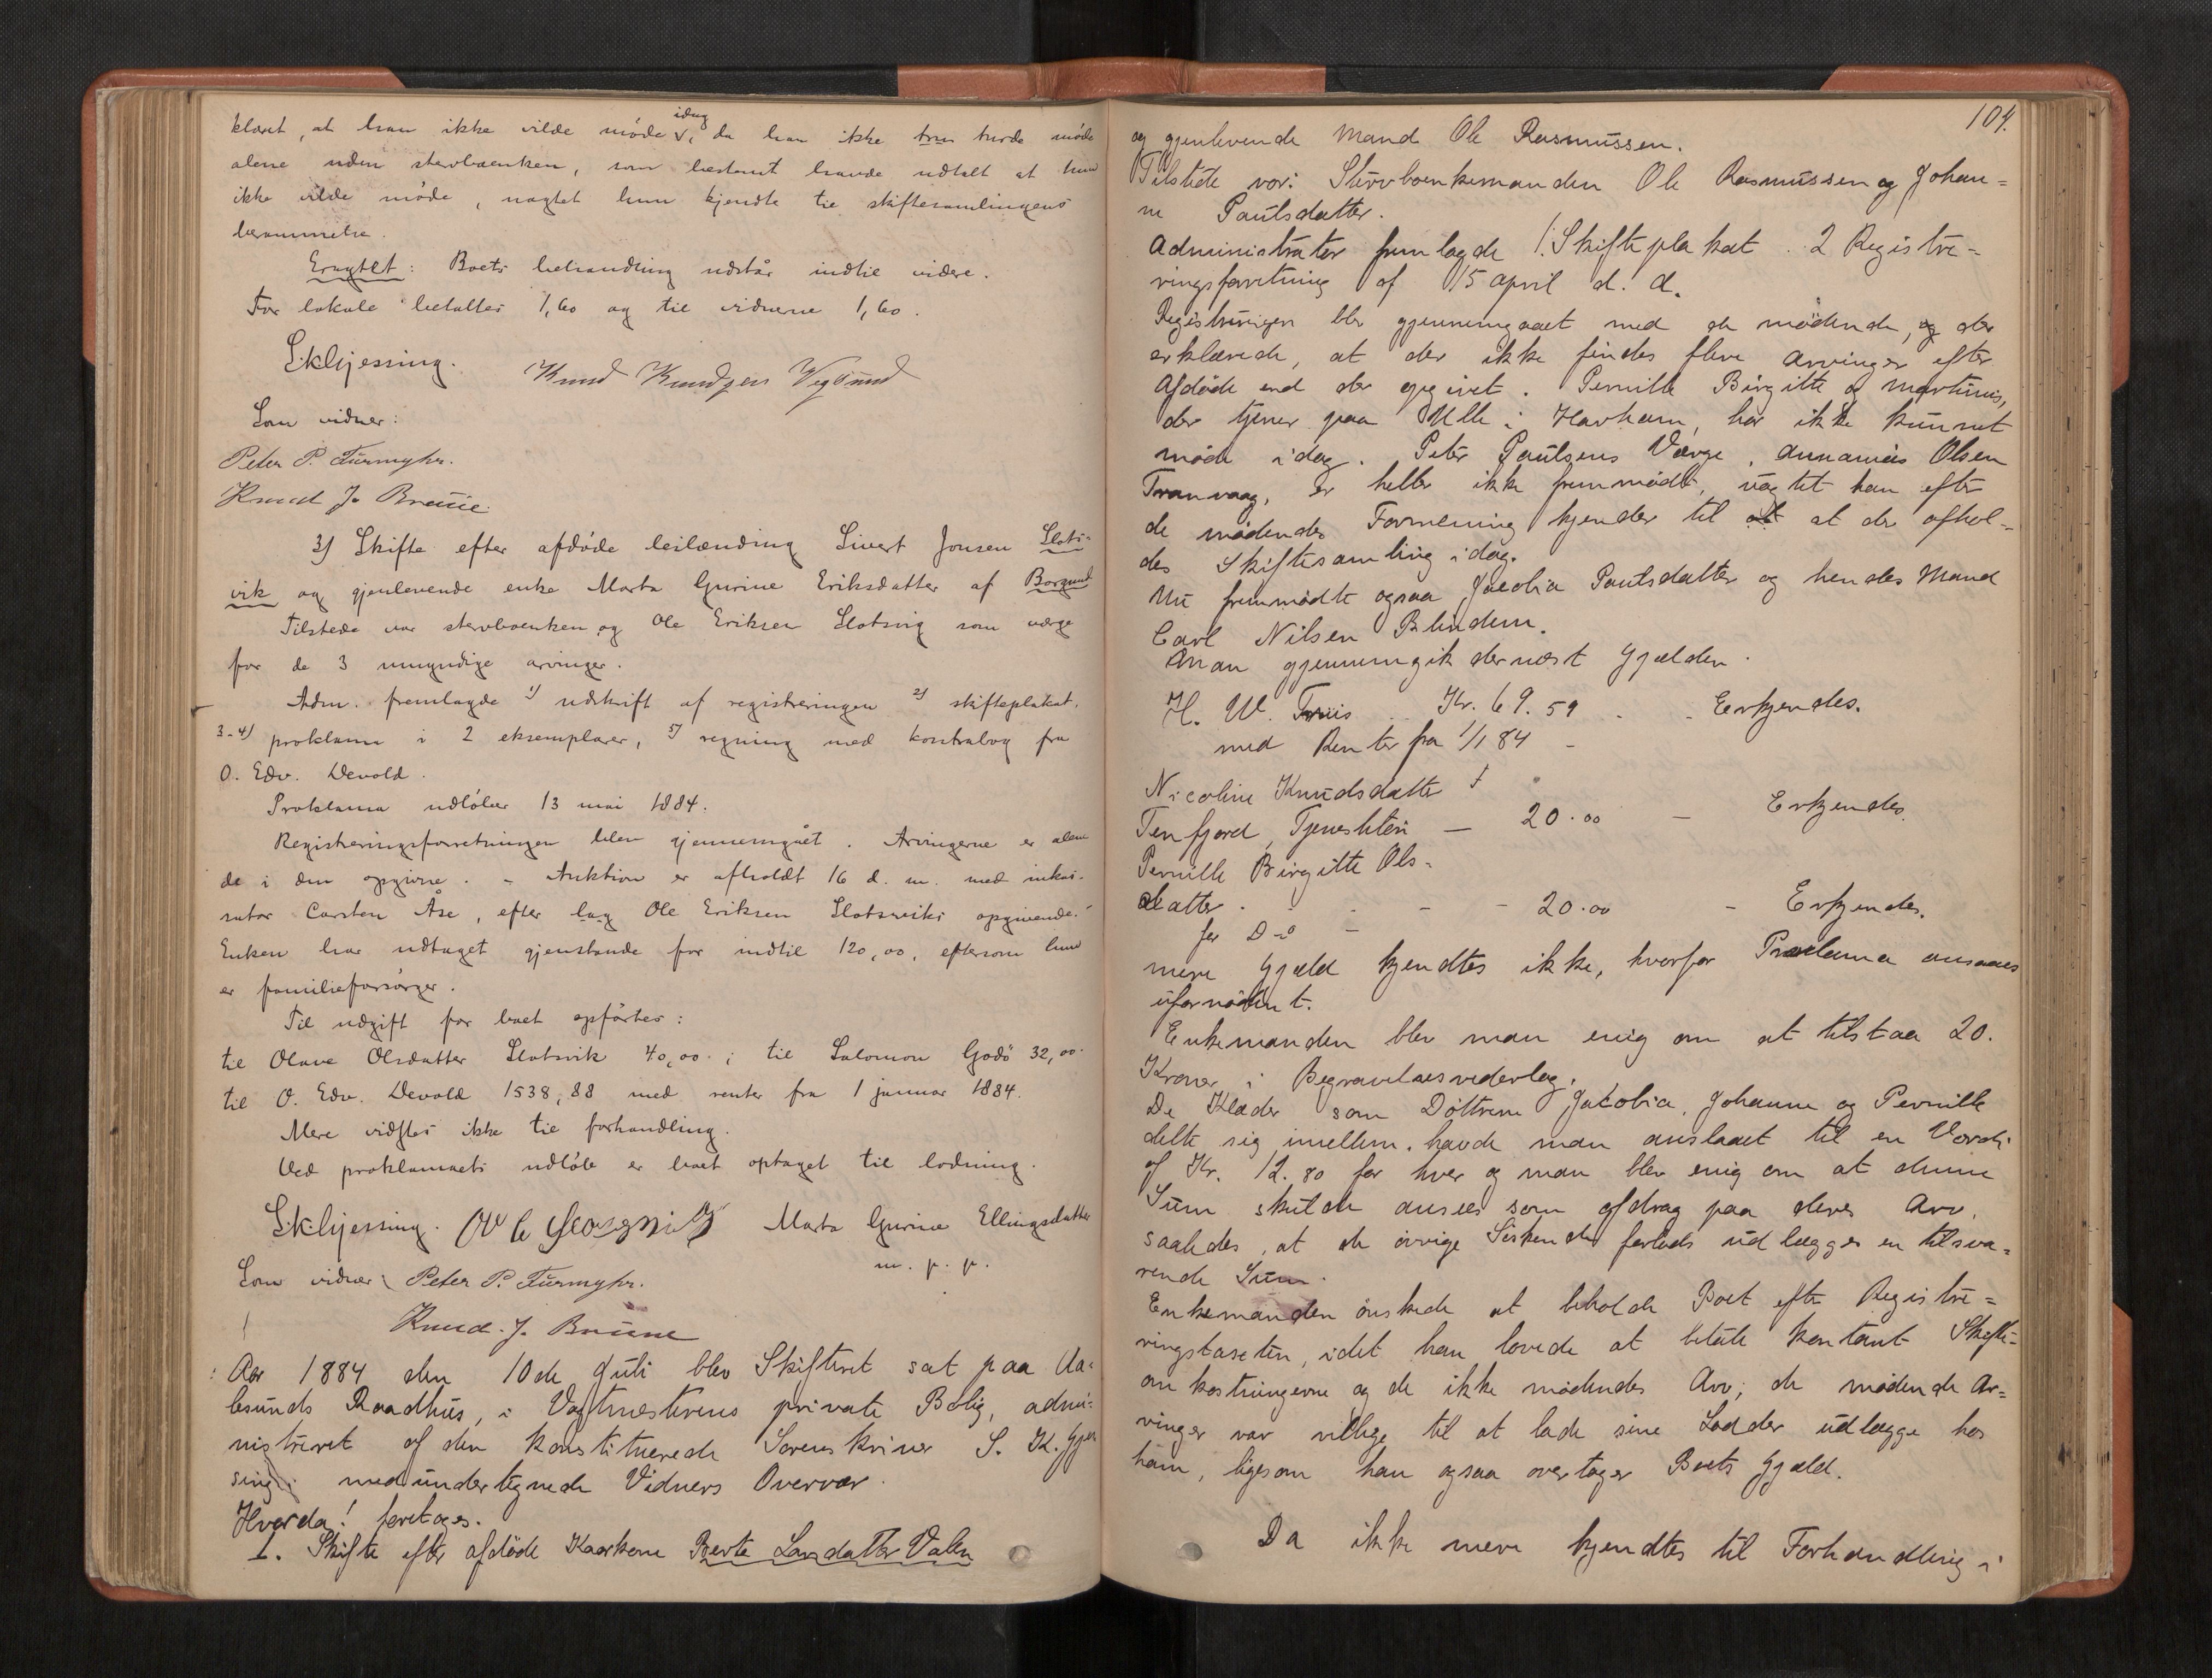 klæret, at han ikke vilde møde idag, da han ikke turde møde
alene uden stervboenken, som bestemt havde udtalt at hun
ikke vilde møde, uagtet hun kjendte til skiftesamlingens
berammelse.
Eragtet: Boets behandling udstår indtil videre.
For lokale betaltes 1,60 og til vidnerne 1,60.
S.K. Gjessing. Knud Knudsen Vegsund
Som vidner:
Peter P. Furmyhr.
Knud J. Brune
3) Skifte efter afdøde leilænding Sivert Jonsen Slots-
vik og gjenlevende enke Marta Gurine Eriksdatter af Borgund
Tilstede var stervboenken og Ole Eriksen Slotsvig som værge
for de 3 umyndige arvinger.
Adm. fremlagde 1) udskrift af registreringen 2) skifteplakat.
3-4) proklama i 2 eksemplarer, 5) regning med kontrabog fra
O. Edv. Devold.
Proklama udløber 13 mai 1884.
Registreringsforretningen blev gjennemgået. Arvingerne er alene
de i den opgivne. - Auktion er afholdt 16 d. m. med inkas-
sator Carsten Åse, efter lag Ole Eriksen Slotsviks opgivende.
Enken har udtaget gjenstande for indtil 120,00, eftersom hun
er familieforsørger.
Til udgift for boet opførtes:
til Olave Olsdatter Slotsvik 40,00; til Salomon Godø 32,00.
til O. Edv. Devold 1538,88 med renter fra 1 januar 1884.
Mere vidstes ikke til forhandling.
Ved proklamaets udløb er boet optaget til lodning.
S.K. Gjessing. Ole Marta Gurine Ellingsdatter
m. p. p.
Som vidner: Peter P. Furmyhr.
Knud. J. Brune
Aar 1884 den 10de Juli blev Skifteret sat paa Aa-
lesunds Raadhus, i Vagtmesterens private Bolig, admi-
nistreret af den konstituerede Sorenskriver S. K. Gjes
sing i medundertegnede Vidners Overvær.
Hvorda! foretoges.
1. Skifte efter afdøde Kaarkone Berte Larsdatter Valen
104.
og gjenlevende Mand Ole Rasmussen.
Tilstede var: Stervboenkemanden Ole Rasmussen og Johan-
ne Paulsdatter.
Administrator fremlagde 1. Skifteplakat. 2 Registre-
ringsforretning af 15 april d. A.
Registreringen blev gjennemgaaet med de mødende, og der
erklærede, at der ikke findes flere Arvinger efter
Afdøde end der opgivet. Pernille Birgitte og Martinus,
der tjener paa Ulle i Havham, har ikke kunnet
møde idag. Peter Paulsens Værge, Annanias Olsen
Tranvaag, er heller ikke fremmødt, uagtet han efter
de mødendes Formening kjender til at at der afhol-
des Skiftesamling idag.
Nu fremmødte ogsaa Jacobia Paulsdatter og hendes Mand
Carl Nilsen Blindem.
Man gjennemgik dernæst Gjælden.
H. W. Friis Kr. 69.59 Erkjendes.
med Renter fra 1/1 84 -
Nicoline Knudsdatter
Tenfjord, Tjenesteløn - 20.00 - Erkjendes.
Pernille Birgitte Ols-
datter - - 20.00 - Erkjendes.
for D-o -
mere Gjæld kjendtes ikke, hvorfor Proclama ansaaes
ufornødent.
Enkemanden blev man enig om at tilstaa 20.
Kroner i Begravelsesvederlag.
De Klæder som Døttrene Jakobia, Johanne og Pernille
delte sig imellem, havde man anslaaet til en Værdi
af Kr. 12.80 for hver og man blev enig om at denne
Sum skulde ansees som afdrag paa deres Arv,
saaledes, at de øvrige Sødskende forlods udlægges en tilsva-
rende Sum.
Enkemanden ønskede at beholde Boet efter Registre-
ringstaxten, idet han lovede at betale kontant Skifte-
omkostningerne og de ikke mødendes Arv; de mødende Ar-
vinger var villige til at lade sine Lodder udlægge hos
ham, ligesom han ogsaa overtager Boets Gjæld.
Da ikke mere kjendtes til Forhandling i